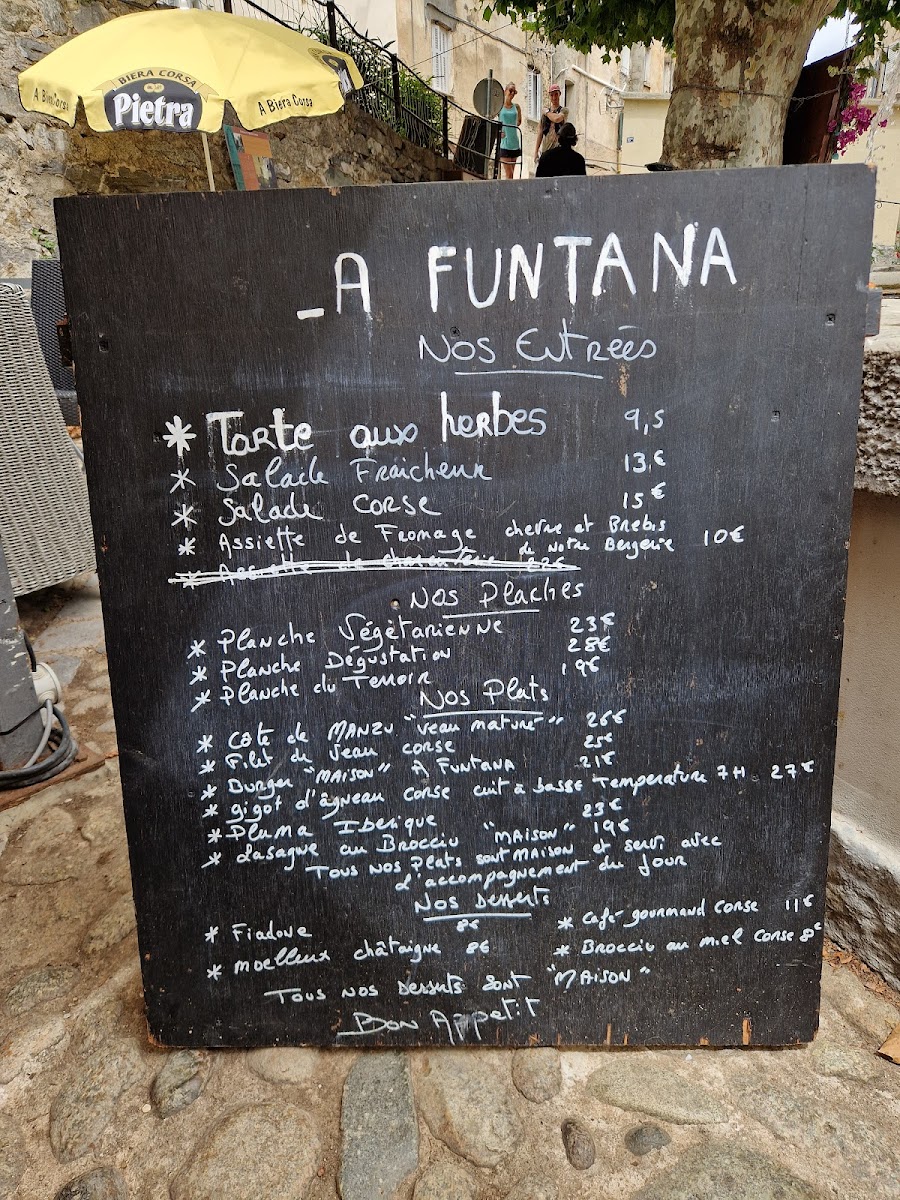 BIERA CORSA
Pietra
A Biera Corsa
A Biera Corsa
_A FUNTANA
Nos Entrées
* Tarte aux herbes 9,5
* Salade Fraicheur 13,€
* Salade CORSE 15€
* Assiette de Fromage chevre et Brebis 10€
de Notre Bergerie
* Assiette de charcuterie 22€
Nos Planches
* Planche Végétarienne 23€
* Planche Dégustation 28€
* Planche du Terroir 19€
Nos Plats
* Côte de MANZU "veau maturé" 26€
* Filet de Veau corse 25€
* Burger "MAISON" A FUNTANA 21€
* gigot d'âgneau corse cuit à basse Température 7H 27€
* Pluma Iberique 23€
* Lasagne au Brocciu "MAISON" 19€
Tous nos Plats sont MAISON et servi avec
d'accompagnement du jour
Nos Desserts
* Fiadone 8€
* Café gourmand Corse 11€
* Moelleux châtaigne 8€
* Brocciu au miel Corse 8€
Tous nos desserts sont "MAISON"
Bon Appetit